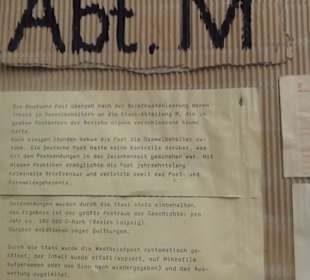 Abt. M
Die Deutsche Post übergab nach der Briefkastenleerung deren
Inhalt in Sammelbehältern an die Stasi-Abteilung M, die in
großen Postämtern der Bezirke eigene verschlossene Räume
hatte.
Nach einigen Stunden bekam die Post die Sammelbehälter zu-
rück. Die Deutsche Post hatte keine Kontrolle darüber, was
mit den Postsendungen in der Zwischenzeit geschehen war. Mit
diesen Praktiken ermöglichte die Post jahrzehntelang
kriminelle Briefzensur und verletzte somit das Post- und
Fernmeldegeheimnis.
Geldsendungen wurden durch die Stasi stets einbehalten.
Das Ergebnis ist der größte Postraub der Geschichte: pro
Jahr ca. 180 000 D-Mark (Bezirk Leipzig).
Darüber existieren sogar Quittungen.
Durch die Stasi wurde die Westbriefpost systematisch ge-
öffnet, der Inhalt wurde erfaßt (kopiert, auf Mikrofilm
aufgenommen oder dem Sinn nach wiedergegeben) und der Aus-
wertung zugeleitet.